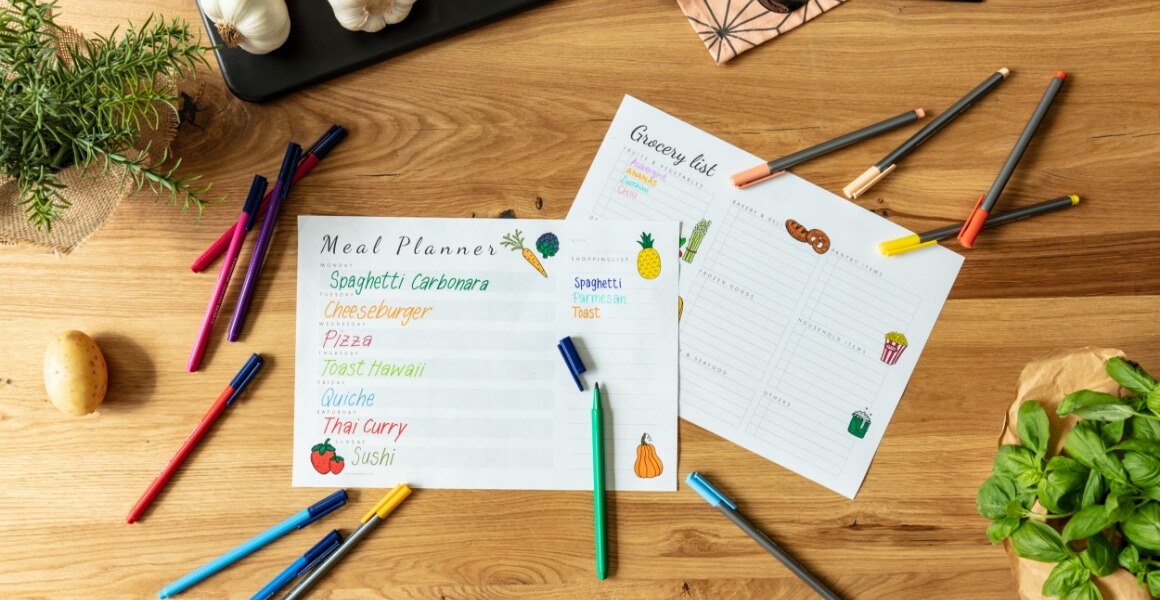 Grocery list
FRUITS & VEGETABLES
Aubergine
ANANAS
Zucchini
Chili
BAKERY & DELI
PANTRY ITEMS
FROZEN GOODS
HOUSEHOLD ITEMS
& SEAFOOD
OTHERS
Meal Planner
MONDAY
Spaghetti Carbonara
TUESDAY
Cheeseburger
WEDNESDAY
Pizza
THURSDAY
Toast Hawaii
FRIDAY
Quiche
SATURDAY
Thai Curry
SUNDAY
Sushi
SHOPPINGLIST
Spaghetti
Parmesan
Toast